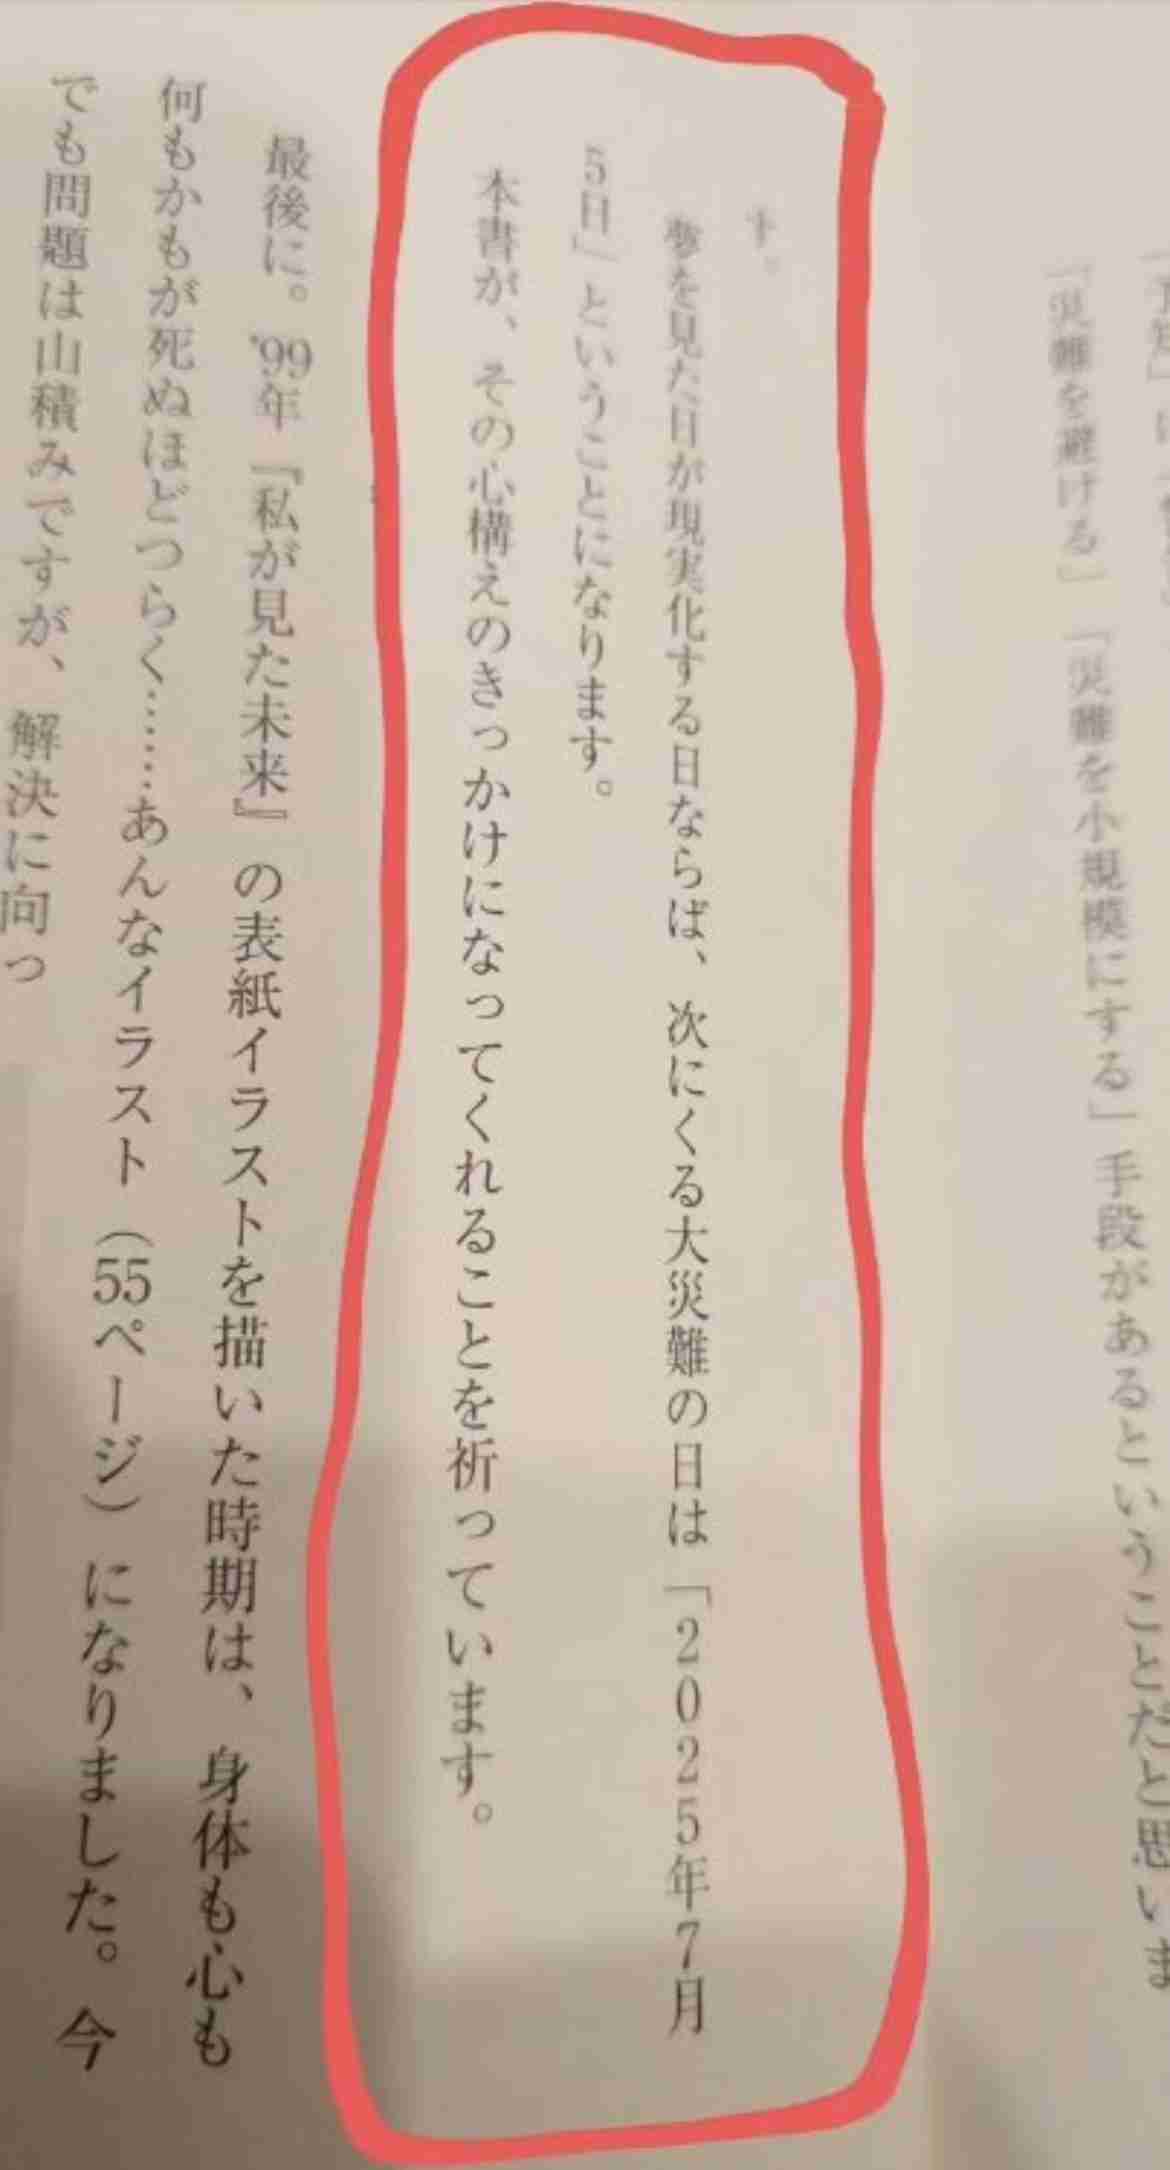 「災難を避ける」「災難を小規模にする」手段があるということだと思いま
す。
夢を見た日が現実化する日ならば、次にくる大災難の日は「2025年7月
5日」ということになります。
本書が、その心構えのきっかけになってくれることを祈っています。
最後に。'99年『私が見た未来』の表紙イラストを描いた時期は、身体も心も
何もかもが死ぬほどつらく……あんなイラスト（55ページ）になりました。今
でも問題は山積みですが、解決に向っ